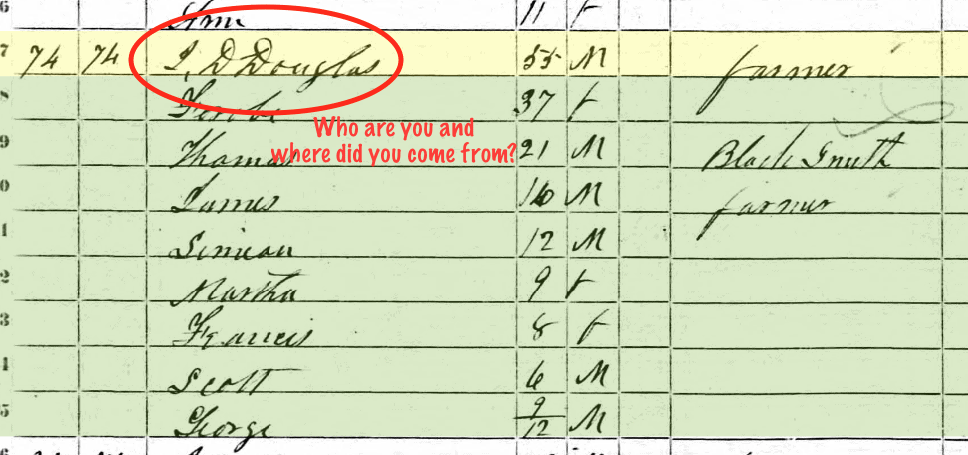 Ann 11 f
7 74 74 I, D Douglas 55 M farmer
8 37 f
Who are you and
where did you come from?
9 Thomas 21 M Black Smith
0 James 16 M farmer
1 Simeon 12 M
2 Martha 9 f
3 Francis 8 f
4 Scott 6 M
5 George 9/12 M